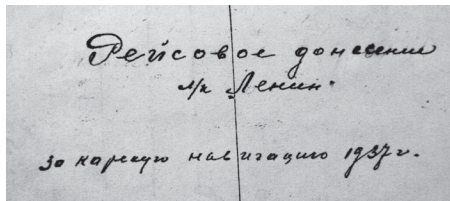 Рейсовое донесение
л/к "Ленин"
за карскую навигацию 1937 г.